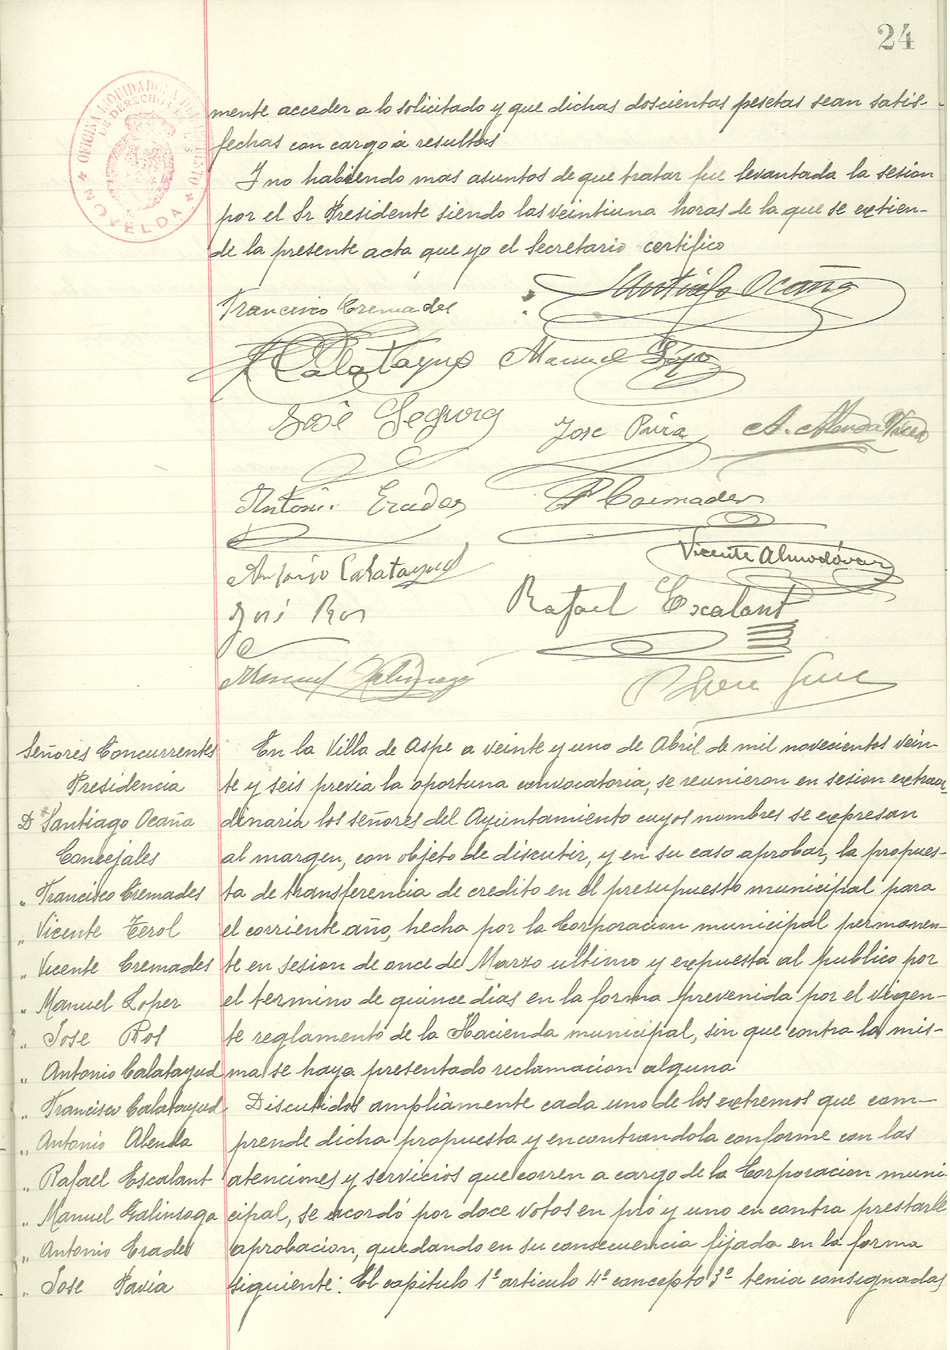 24
OFICINA LIQUIDADORA DEL IMPUESTO
DE DERECHOS REALES
NOVELDA
mente acceder a lo solicitado y que dichas doscientas pesetas sean satis-
fechas con cargo á resultas
Y no habiendo mas asuntos de que tratar fue levantada la sesión
por el Sr Presidente siendo las veintiuna horas de la que se extien-
de la presente acta que yo el Secretario certifico
Francisco Cremades
Santiago Ocaña
Calatayud
Manuel
José Segura
Jose Pavia
A.
Antonio Erades
Cremades
Vicente Almodóvar
Antonio Calatayud
José Ros
Rafael Escalant
Manuel Galinsoga
Señores Concurrentes
Presidencia
D Santiago Ocaña
Concejales
" Francisco Cremades
" Vicente Cerol
" Vicente Cremades
" Manuel Lopez
" Jose Ros
" Antonio Calatayud
" Francisco Calatayud
" Antonio Abenda
" Rafael Escalant
" Manuel Galinsoga
" Antonio Erades
" Jose Pavia
En la Villa de Aspe a veinte y uno de Abril de mil novecientos vein-
te y seis previa la oportuna convocatoria, se reunieron en sesion extraor-
dinaria los señores del Ayuntamiento cuyos nombres se expresan
al margen, con objeto de discutir, y en su caso aprobar, la propues-
ta de transferencia de credito en el presupuesto municipal para
el corriente año, hecha por la Corporacion municipal permanen-
te en sesion de once de Marzo ultimo y expuesta al publico por
el termino de quince dias en la forma prevenida por el vigen-
te reglamento de la Hacienda municipal, sin que contra la mis-
ma se haya presentado reclamacion alguna
Discutidos ampliamente cada uno de los extremos que com-
prende dicha propuesta y encontrandola conforme con las
atenciones y servicios que corren a cargo de la Corporacion muni-
cipal, se acordó por doce votos en pró y uno en contra prestarle
aprobacion, quedando en su consecuencia fijada en la forma
siguiente: El capitulo 1º articulo 4º concepto 3º tenia consignadas